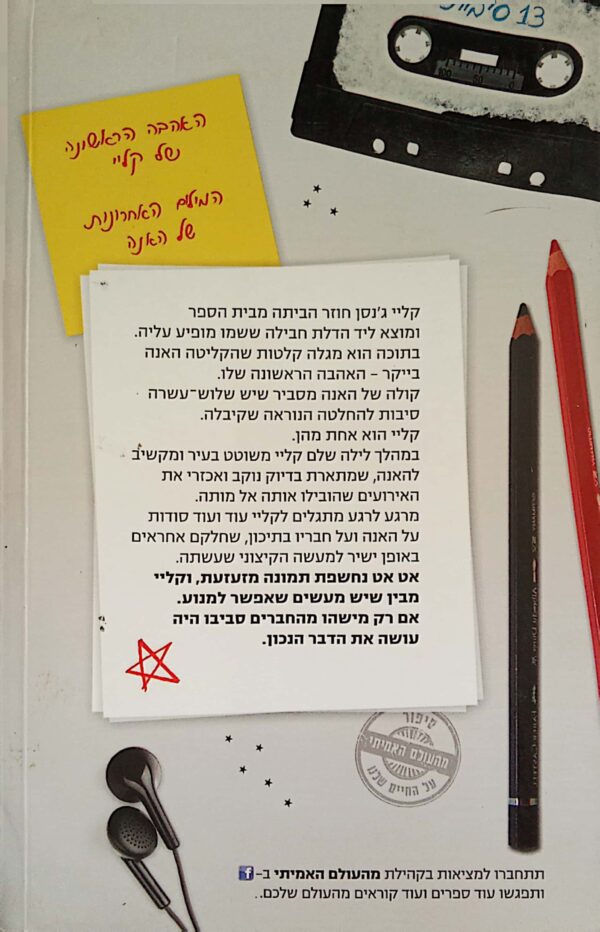 13 סיבות
האהבה הראשונה
של קליי
המילים האחרונות
של האנה
קליי ג'נסן חוזר הביתה מבית הספר
ומוצא ליד הדלת חבילה ששמו מופיע עליה.
בתוכה הוא מגלה קלטות שהקליטה האנה
בייקר – האהבה הראשונה שלו.
קולה של האנה מסביר שיש שלוש־עשרה
סיבות להחלטה הנוראה שקיבלה.
קליי הוא אחת מהן.
במהלך לילה שלם קליי משוטט בעיר ומקשיב
להאנה, שמתארת בדיוק נוקב ואכזרי את
האירועים שהובילו אותה אל מותה.
מרגע לרגע מתגלים לקליי עוד ועוד סודות
על האנה ועל חבריו בתיכון, שחלקם אחראים
באופן ישיר למעשה הקיצוני שעשתה.
אט אט נחשפת תמונה מזעזעת, וקליי
מבין שיש מעשים שאפשר למנוע.
אם רק מישהו מהחברים סביבו היה
עושה את הדבר הנכון.
סיפור
מהעולם האמיתי
על החיים שלנו
תתחברו למציאות בקהילת מהעולם האמיתי ב-f
ותפגשו עוד ספרים ועוד קוראים מהעולם שלכם..